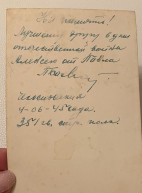 На память!
Лучшему другу в дни
отечественной войны
Алексею от Павла
4-06-45 года.
354 гв. стр. полк.